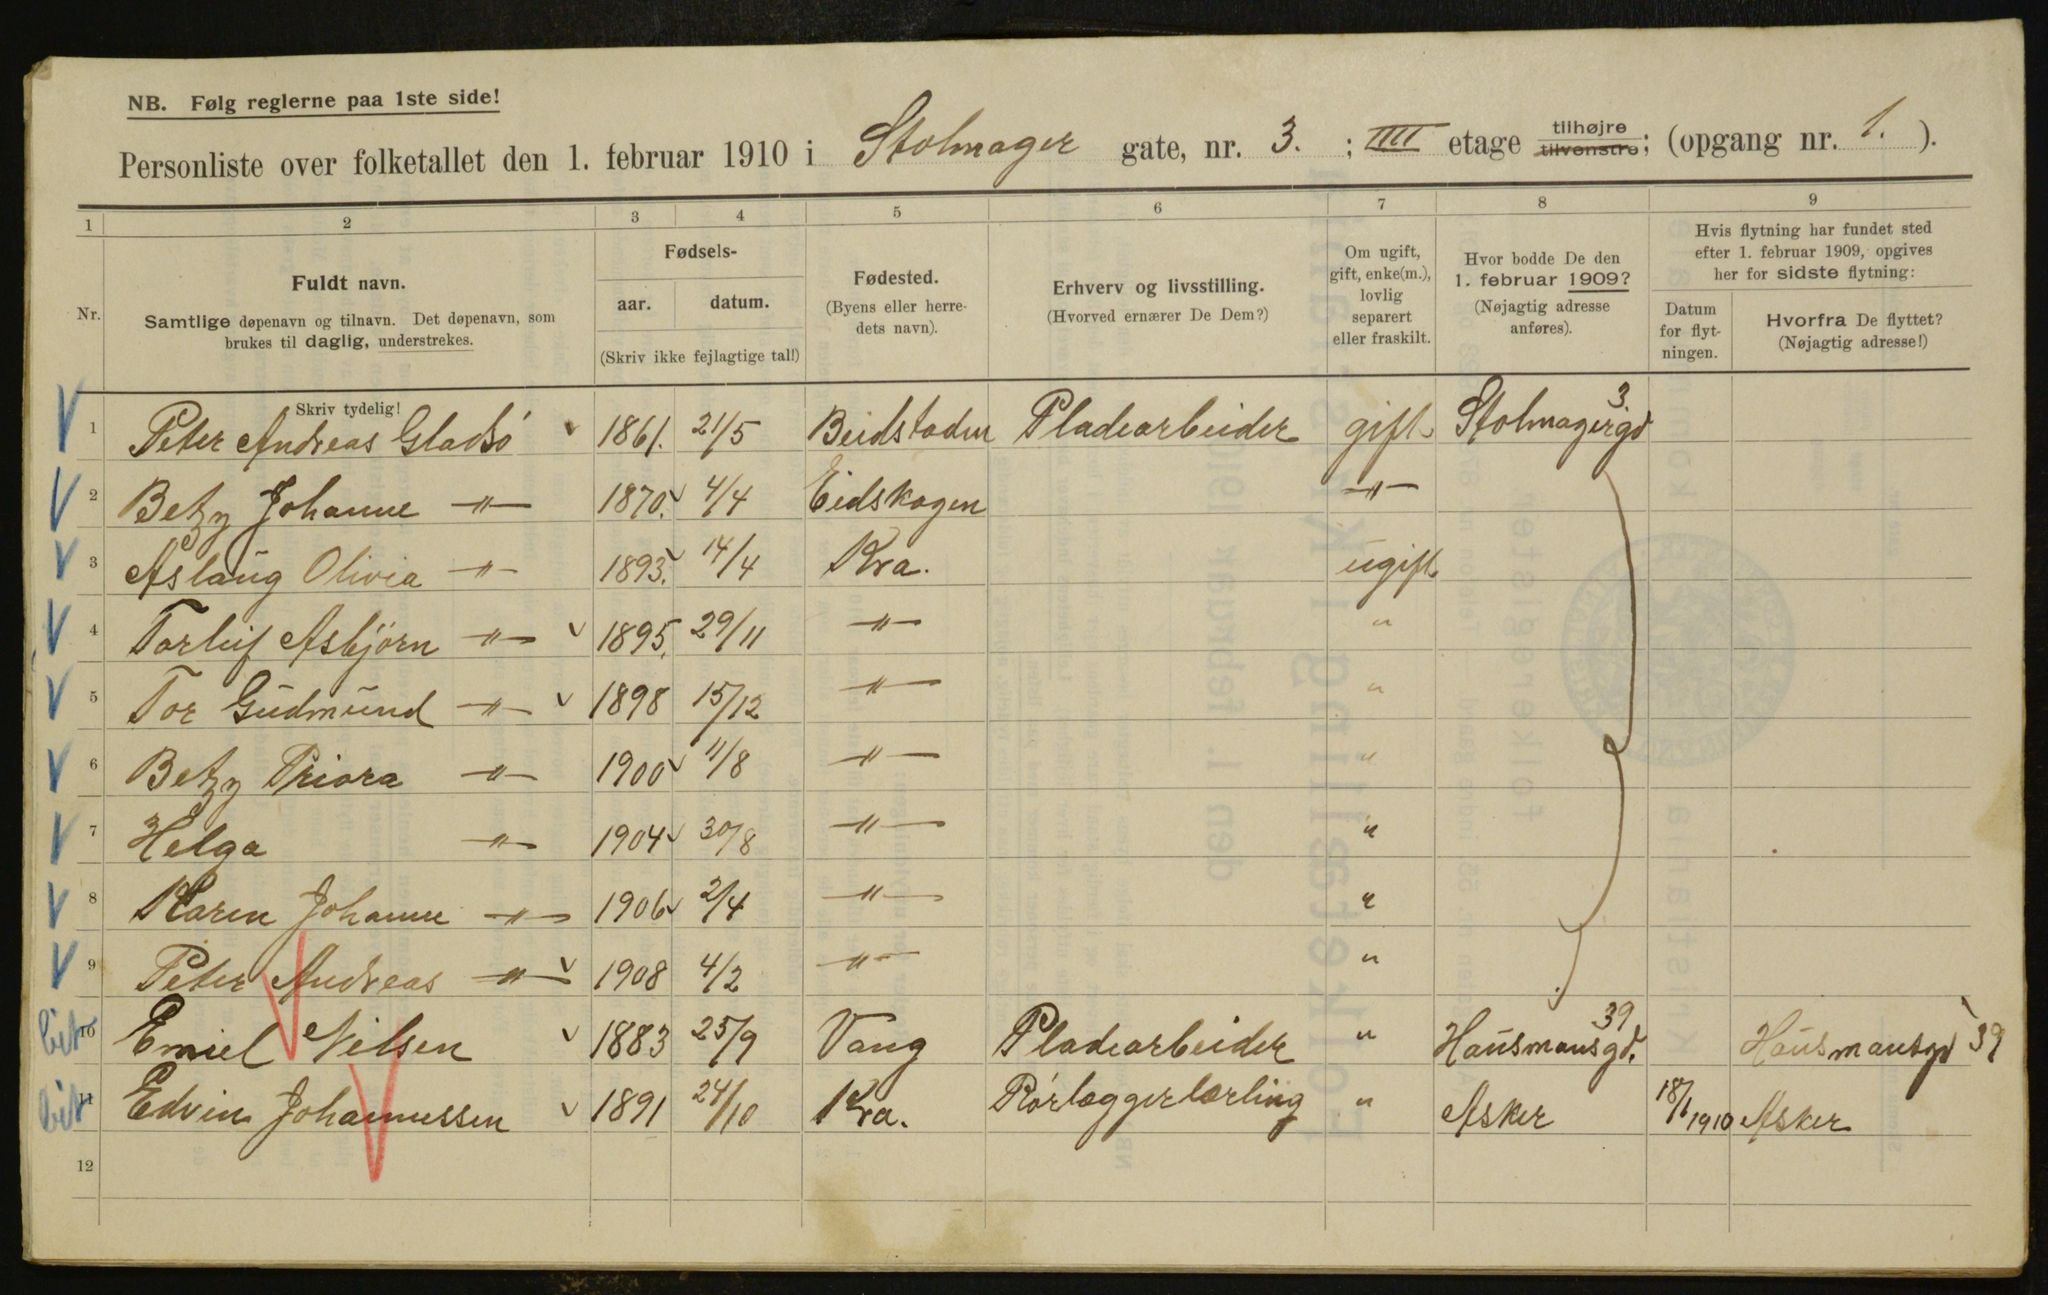 NB. Følg reglerne paa 1ste side!
Personliste over folketallet den 1. februar 1910 i Stolmager gate, nr. 3. ; IIII etage tilhøjre tilvenstre; (opgang nr. 1. ).
1 2 3 4 5 6 7 8 9
Nr.
Fuldt navn.
Samtlige døpenavn og tilnavn. Det døpenavn, som
brukes til daglig, understrekes.
Fødsels-
aar. datum.
(Skriv ikke fejlagtige tal!)
Fødested.
(Byens eller herre-
dets navn).
Erhverv og livsstilling.
(Hvorved ernærer De Dem?)
Om ugift,
gift, enke(m.),
lovlig
separert
eller fraskilt.
Hvor bodde De den
1. februar 1909?
(Nøjagtig adresse
anføres).
Hvis flytning har fundet sted
efter 1. februar 1909, opgives
her for sidste flytning:
Datum
for flyt-
ningen.
Hvorfra De flyttet?
(Nøjagtig adresse!)
Skriv tydelig!
1 Peter Andreas Gladsø 1861. 21/5 Beidstaden Pladearbeider gift. Stolmagergd 3.
2 Betzy Johanne —"— 1870. 4/4 Eidskogen —"—
3 Aslaug Olivia —"— 1893. 14/4 Kra. ugift.
4 Torleif Asbjörn —"— 1895. 29/11 —"— "
5 Tor Gudmund —"— 1898 15/12 —"— "
6 Betzy Priora —"— 1900 11/8 —"— "
7 Helga —"— 1904 30/8 —"— "
8 Karen Johanne —"— 1906 2/4 —"— "
9 Peter Andreas —"— 1908 4/2 —"— "
10 Emiel Nilsen 1883 25/9 Vang Pladearbeider " Hausmansgd. 39 Hausmansgd 39
11 Edvin Johannessen 1891 24/10 Kra. Rörlæggerlærling " Asker 18/1 1910 Asker
12